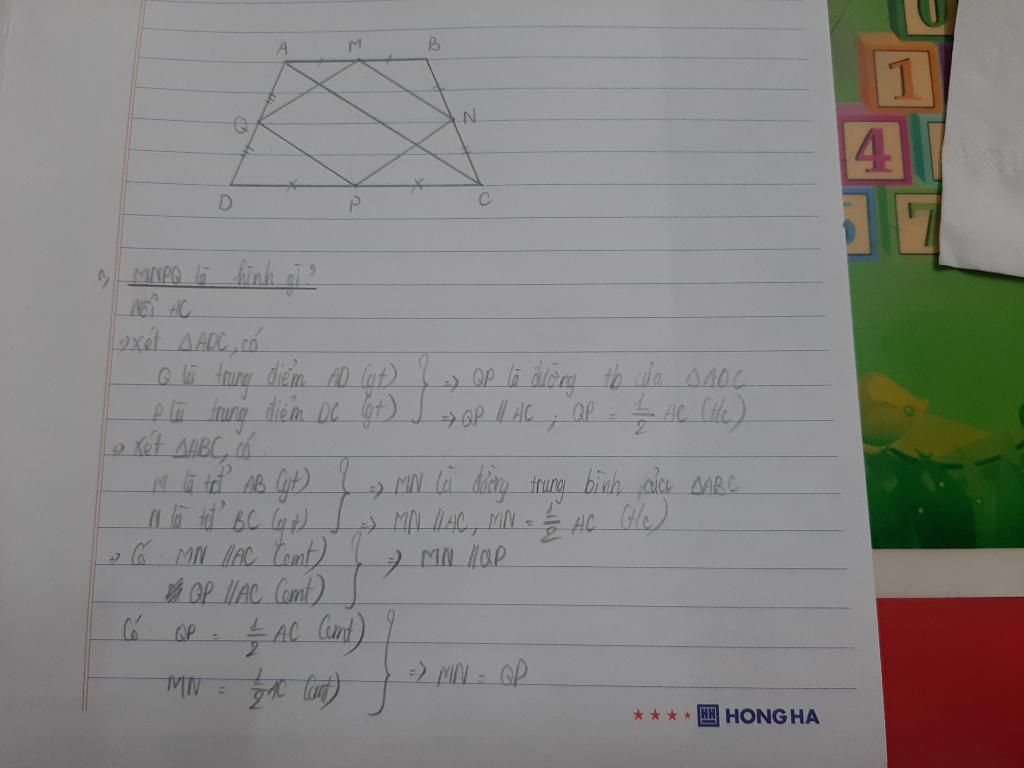 A M B
Q N
D P C
a, MNPQ là hình gì?
Nối AC
→ Xét ΔADC, có
Q là trung điểm AD (gt)
P là trung điểm DC (gt)
=> QP là đường tb của ΔADC
=> QP // AC ; QP = 1/2 AC (t/c)
→ Xét ΔABC, có
M là tđ' AB (gt)
N là tđ' BC (gt)
=> MN là đường trung bình của ΔABC
=> MN // AC, MN = 1/2 AC (t/c)
→ Có: MN // AC (cmt)
QP // AC (cmt)
=> MN // QP
Có: QP = 1/2 AC (cmt)
MN = 1/2 AC (cmt)
=> MN = QP
HONG HA
6
1
4
5 7